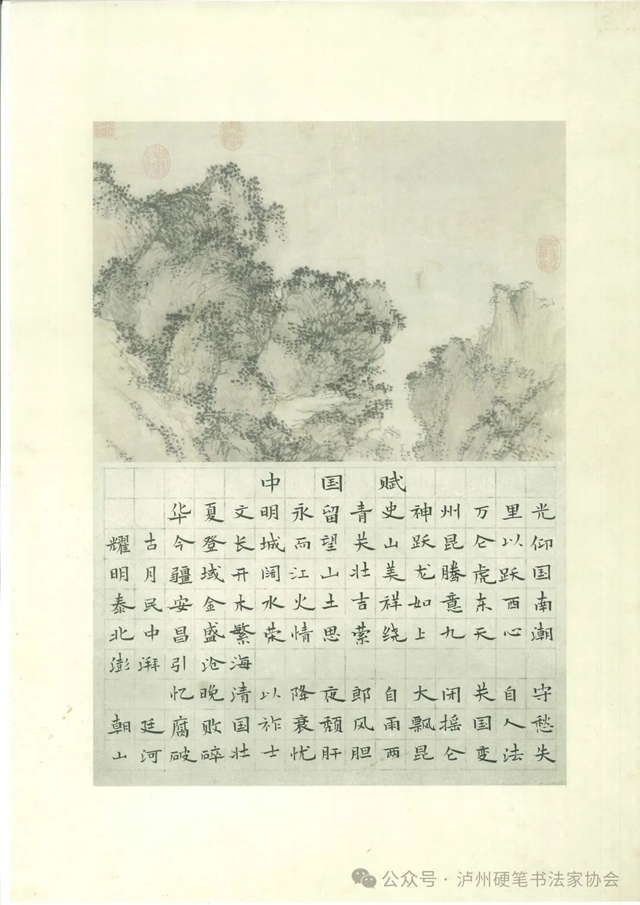 中国赋
华夏文明永留青史神州万里光
耀古今登长城而望关山跃昆仑以仰
明月疆域开阔江山壮美龙腾虎跃国
泰民安金木水火土吉祥如意东西南
北中昌盛繁荣情思萦绕上九天心潮
澎湃引沧海
忆晚清以降夜郎自大闭关自守
朝廷腐败国祚衰颓风雨飘摇国人愁
山河破碎壮士忧肝胆两昆仑变法失
公众号·泸州硬笔书法家协会